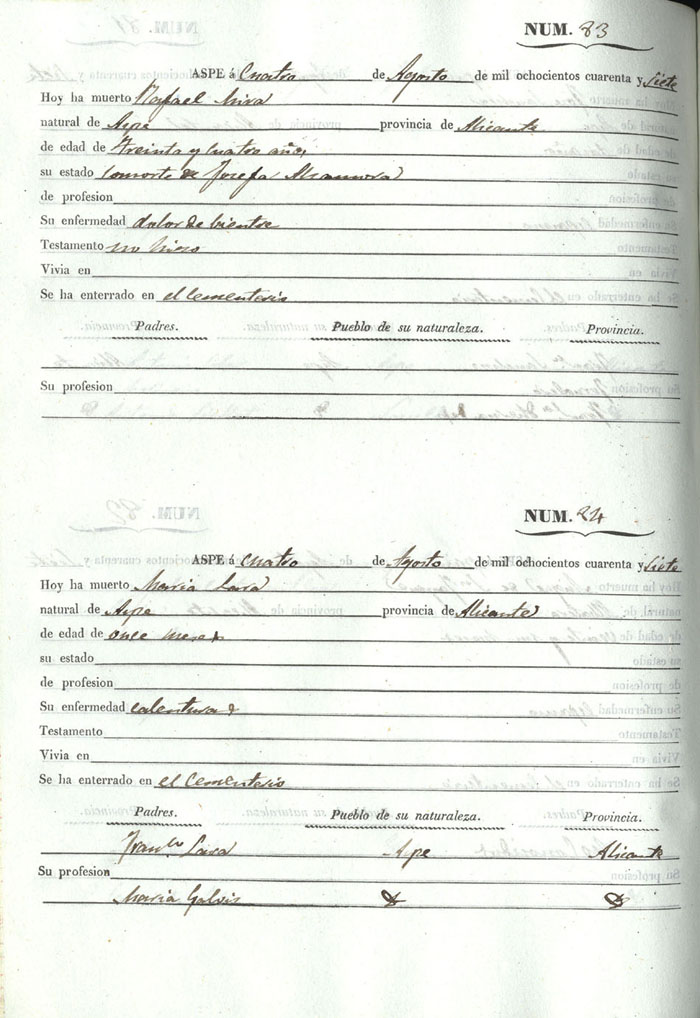 NUM. 83
ASPE á Cuatro de Agosto de mil ochocientos cuarenta y Siete
Hoy ha muerto Rafael Mira
natural de Aspe provincia de Alicante
de edad de Treinta y Cuatro años
su estado Consorte de Josefa
de profesion
Su enfermedad dolor de bientre
Testamento no hiso
Vivia en
Se ha enterrado en el Cementerio
Padres. Pueblo de su naturaleza. Provincia.
Su profesion
NUM. 84
ASPE á Cuatro de Agosto de mil ochocientos cuarenta y Siete
Hoy ha muerto Maria Lara
natural de Aspe provincia de Alicante
de edad de once meses
su estado
de profesion
Su enfermedad calentura
Testamento
Vivia en
Se ha enterrado en el Cementerio
Padres. Pueblo de su naturaleza. Provincia.
Franco Lara Aspe Alicante
Su profesion
Maria Galvis